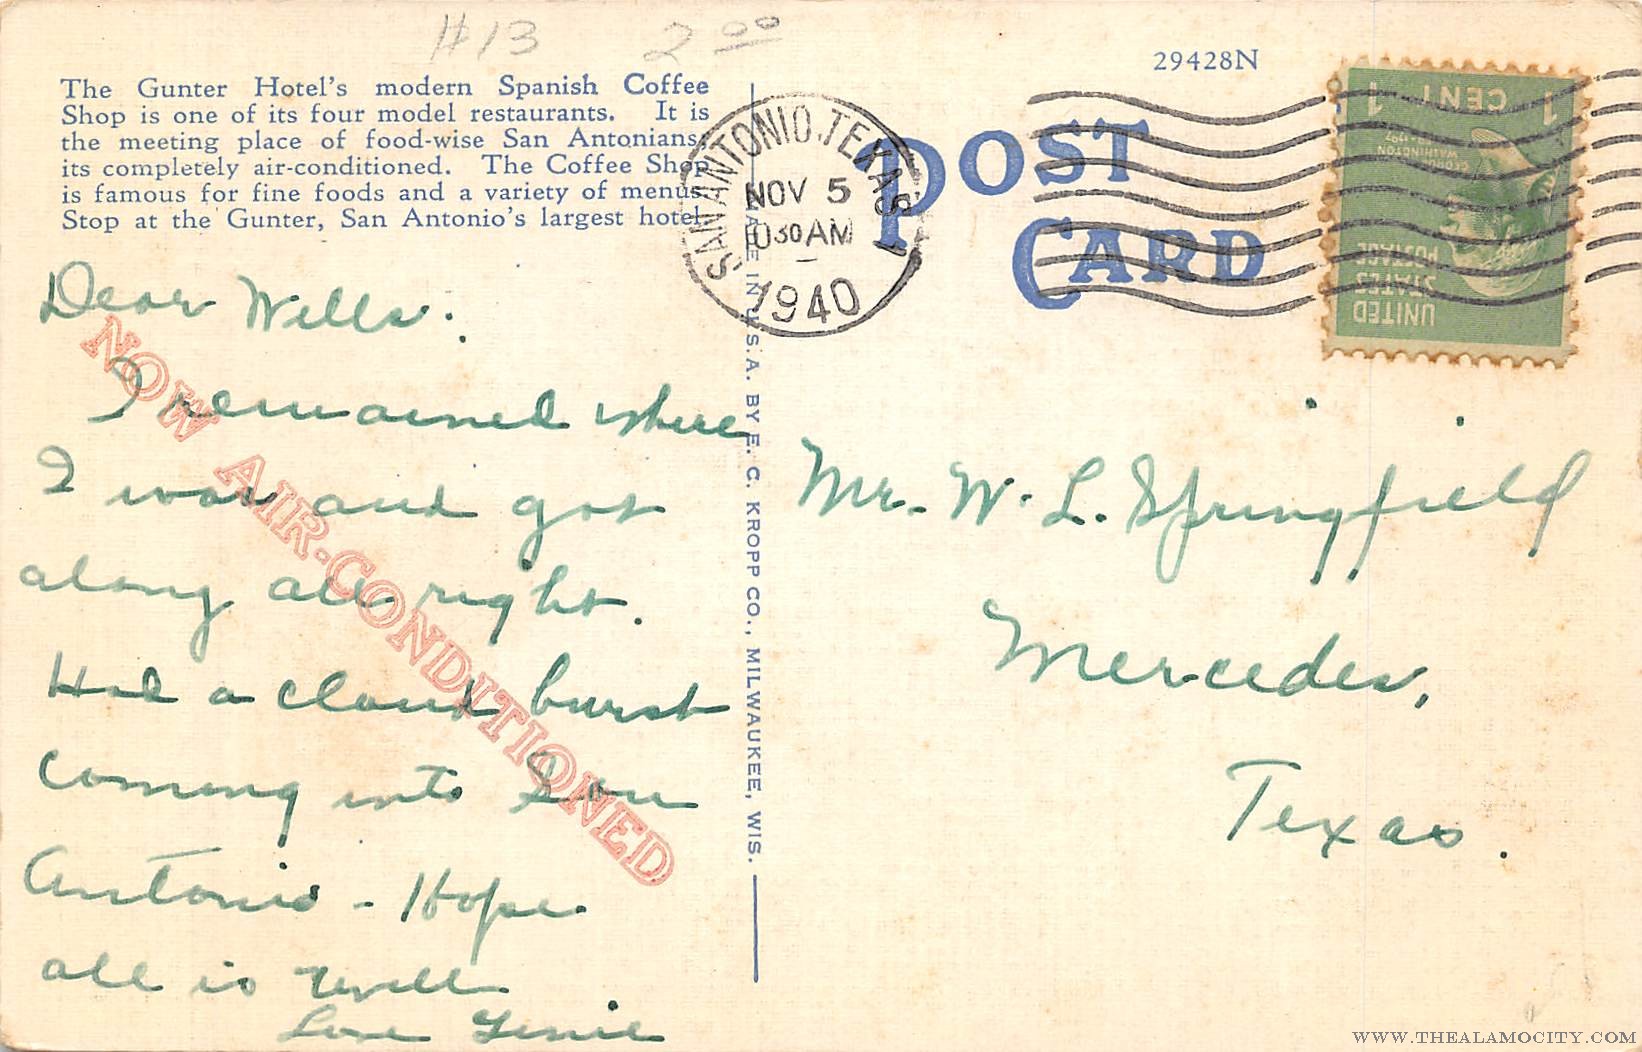 #13 2.00
The Gunter Hotel's modern Spanish Coffee
Shop is one of its four model restaurants. It is
the meeting place of food-wise San Antonians;
its completely air-conditioned. The Coffee Shop
is famous for fine foods and a variety of menus.
Stop at the Gunter, San Antonio's largest hotel.
NOW AIR-CONDITIONED
Dear Wells:
I remained where
I was and got
along all right.
Had a cloud burst
coming into San
Antonio - Hope
all is well
Love Genie
MADE IN U.S.A. BY E. C. KROPP CO., MILWAUKEE, WIS.
29428N
POST
CARD
SAN ANTONIO, TEXAS
NOV 5
1030 AM
1940
1 CENT 1
GEORGE
WASHINGTON
UNITED
STATES
POSTAGE
Mr. W. L. Springfield
Mercedes,
Texas.
WWW.THEALAMOCITY.COM